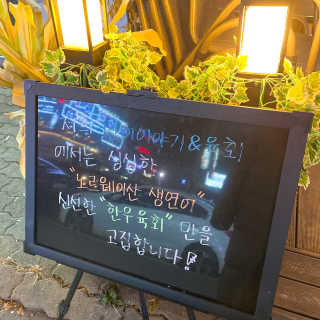 이야기&육회
에서는 싱싱한
"노르웨이산 생연어"
신선한 "한우육회" 만을
고집합니다!